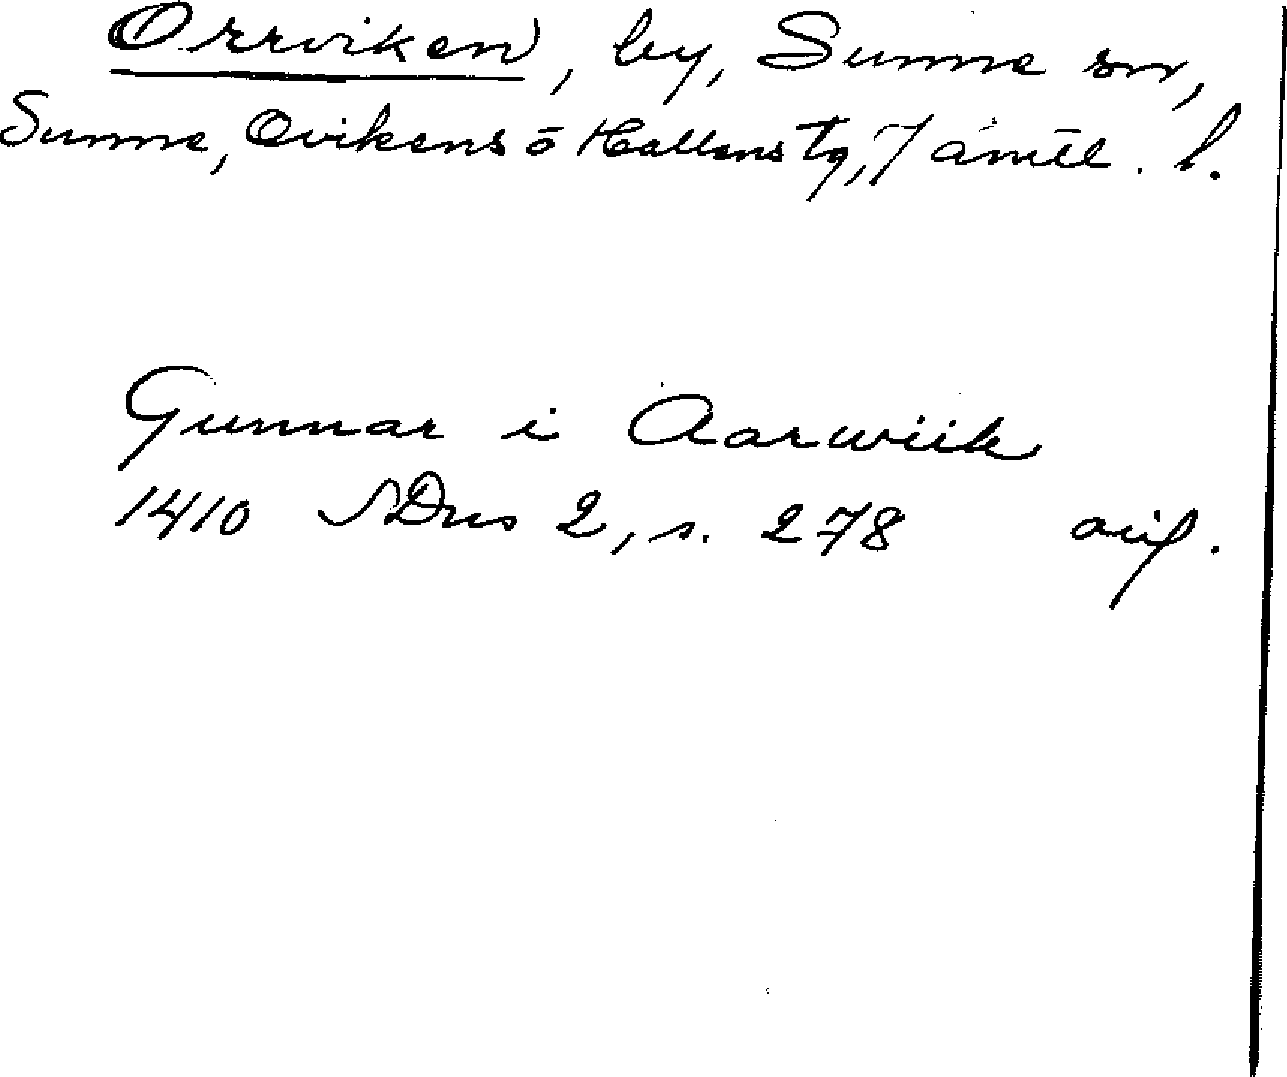 Orrviken, by, Sunne sn,
Sunne, Ovikens o Hallens tg, Jämtl. l.
Gunnar i Aarwiik
1410 SDns 2, s. 278 avs.